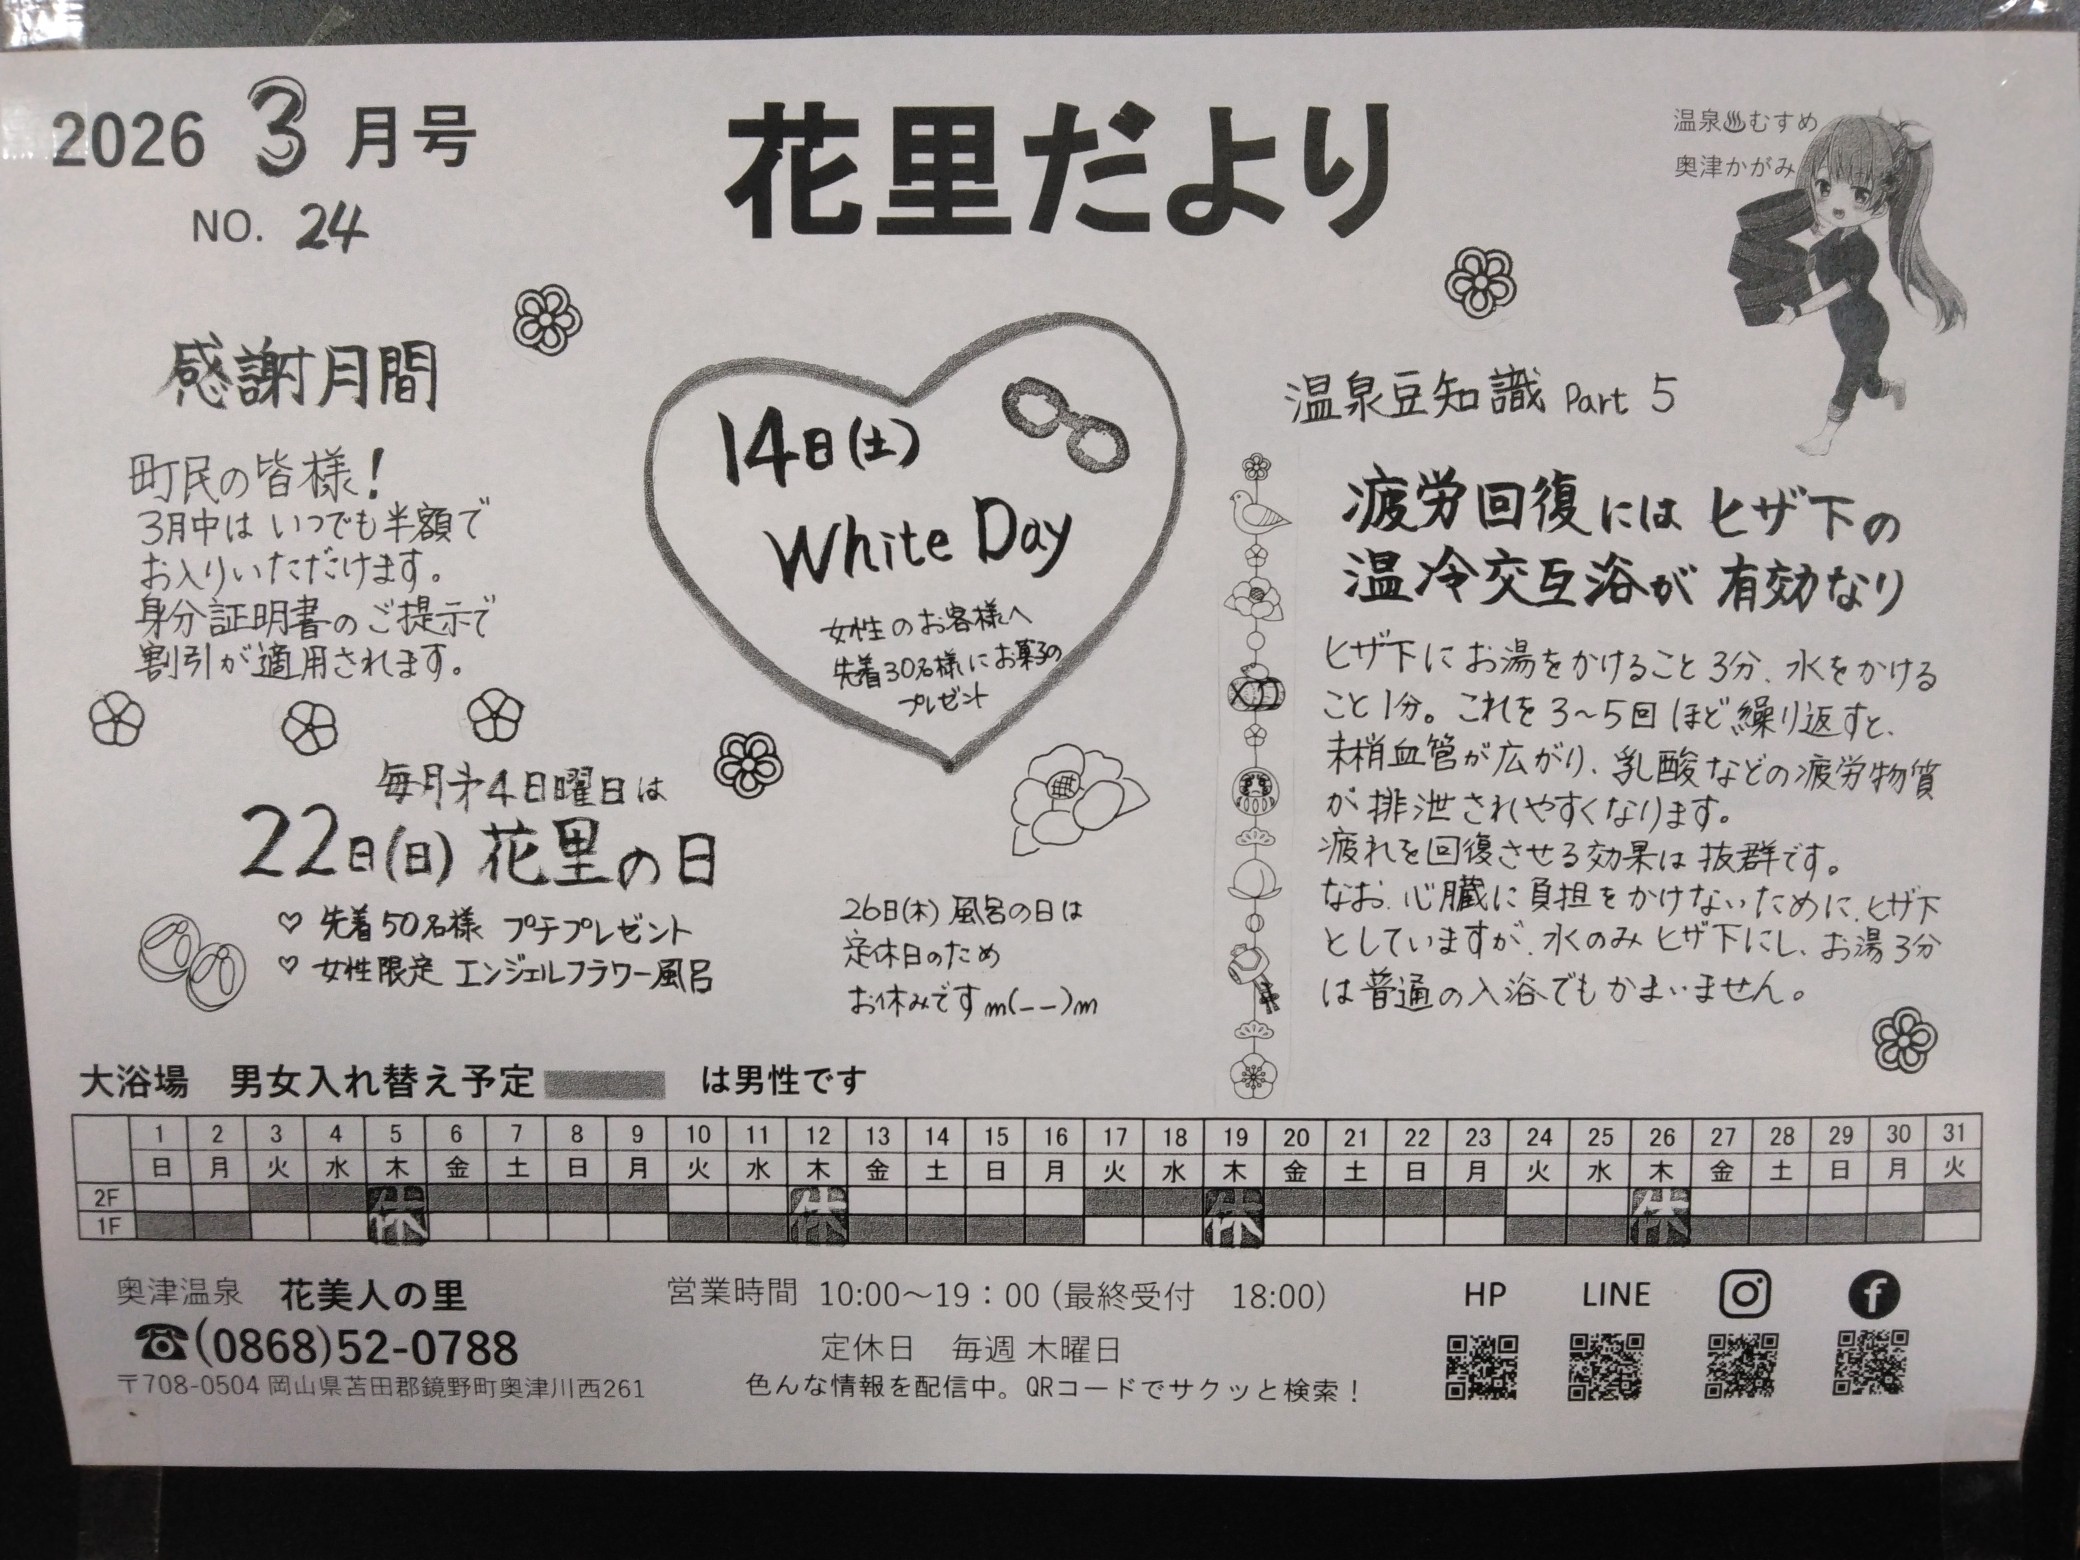 2026 3月号
NO. 24
花里だより
温泉♨むすめ
奥津かがみ
感謝月間
町民の皆様!
3月中は いつでも半額で
お入りいただけます。
身分証明書のご提示で
割引が適用されます。
14日(土)
White Day
女性のお客様へ
先着30名様にお菓子の
プレゼント
温泉豆知識 Part 5
疲労回復には ヒザ下の
温冷交互浴が 有効なり
ヒザ下に お湯をかけること 3分、水をかける
こと 1分。これを 3〜5回 ほど 繰り返すと、
末梢血管が広がり、乳酸などの疲労物質
が排泄されやすくなります。
疲れを回復させる効果は 抜群です。
なお、心臓に負担をかけないために、ヒザ下
としていますが、水のみ ヒザ下にし、お湯3分
は普通の入浴でもかまいません。
毎月才4日曜日は
22日(日) 花里の日
♡ 先着50名様 プチプレゼント
♡ 女性限定 エンジェルフラワー風呂
26日(木) 風呂の日は
定休日のため
お休みです m(--)m
大浴場 男女入れ替え予定 は男性です
1 2 3 4 5 6 7 8 9 10 11 12 13 14 15 16 17 18 19 20 21 22 23 24 25 26 27 28 29 30 31
日 月 火 水 木 金 土 日 月 火 水 木 金 土 日 月 火 水 木 金 土 日 月 火 水 木 金 土 日 月 火
2F
1F
休 休 休 休
奥津温泉 花美人の里
☎(0868)52-0788
〒708-0504 岡山県苫田郡鏡野町奥津川西261
営業時間 10:00〜19:00 (最終受付 18:00)
定休日 毎週 木曜日
色んな情報を配信中。QRコードでサクッと検索!
HP LINE